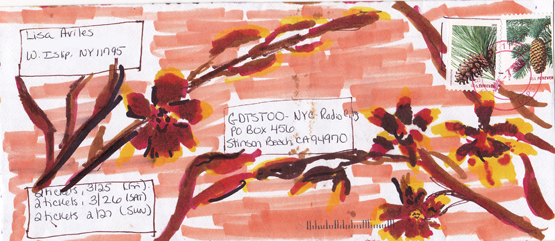 Lisa Aviles
W. Islip, NY 11795
GDTSTOO - NYC - Radio City
PO Box 456
Stinson Beach, CA 94970
2 tickets, 3/25 (Fri)
2 tickets, 3/26 (SAT)
2 tickets 2/27 (SUN)